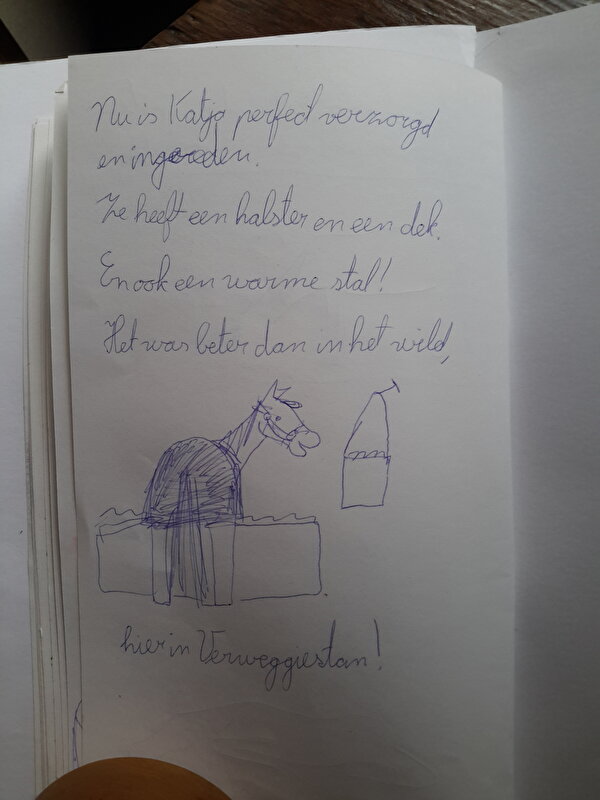 Nu is Katja perfect verzorgd
en ingereden.
Ze heeft een halster en een dek.
En ook een warme stal!
Het was beter dan in het wild,
hier in Verweggiestan!